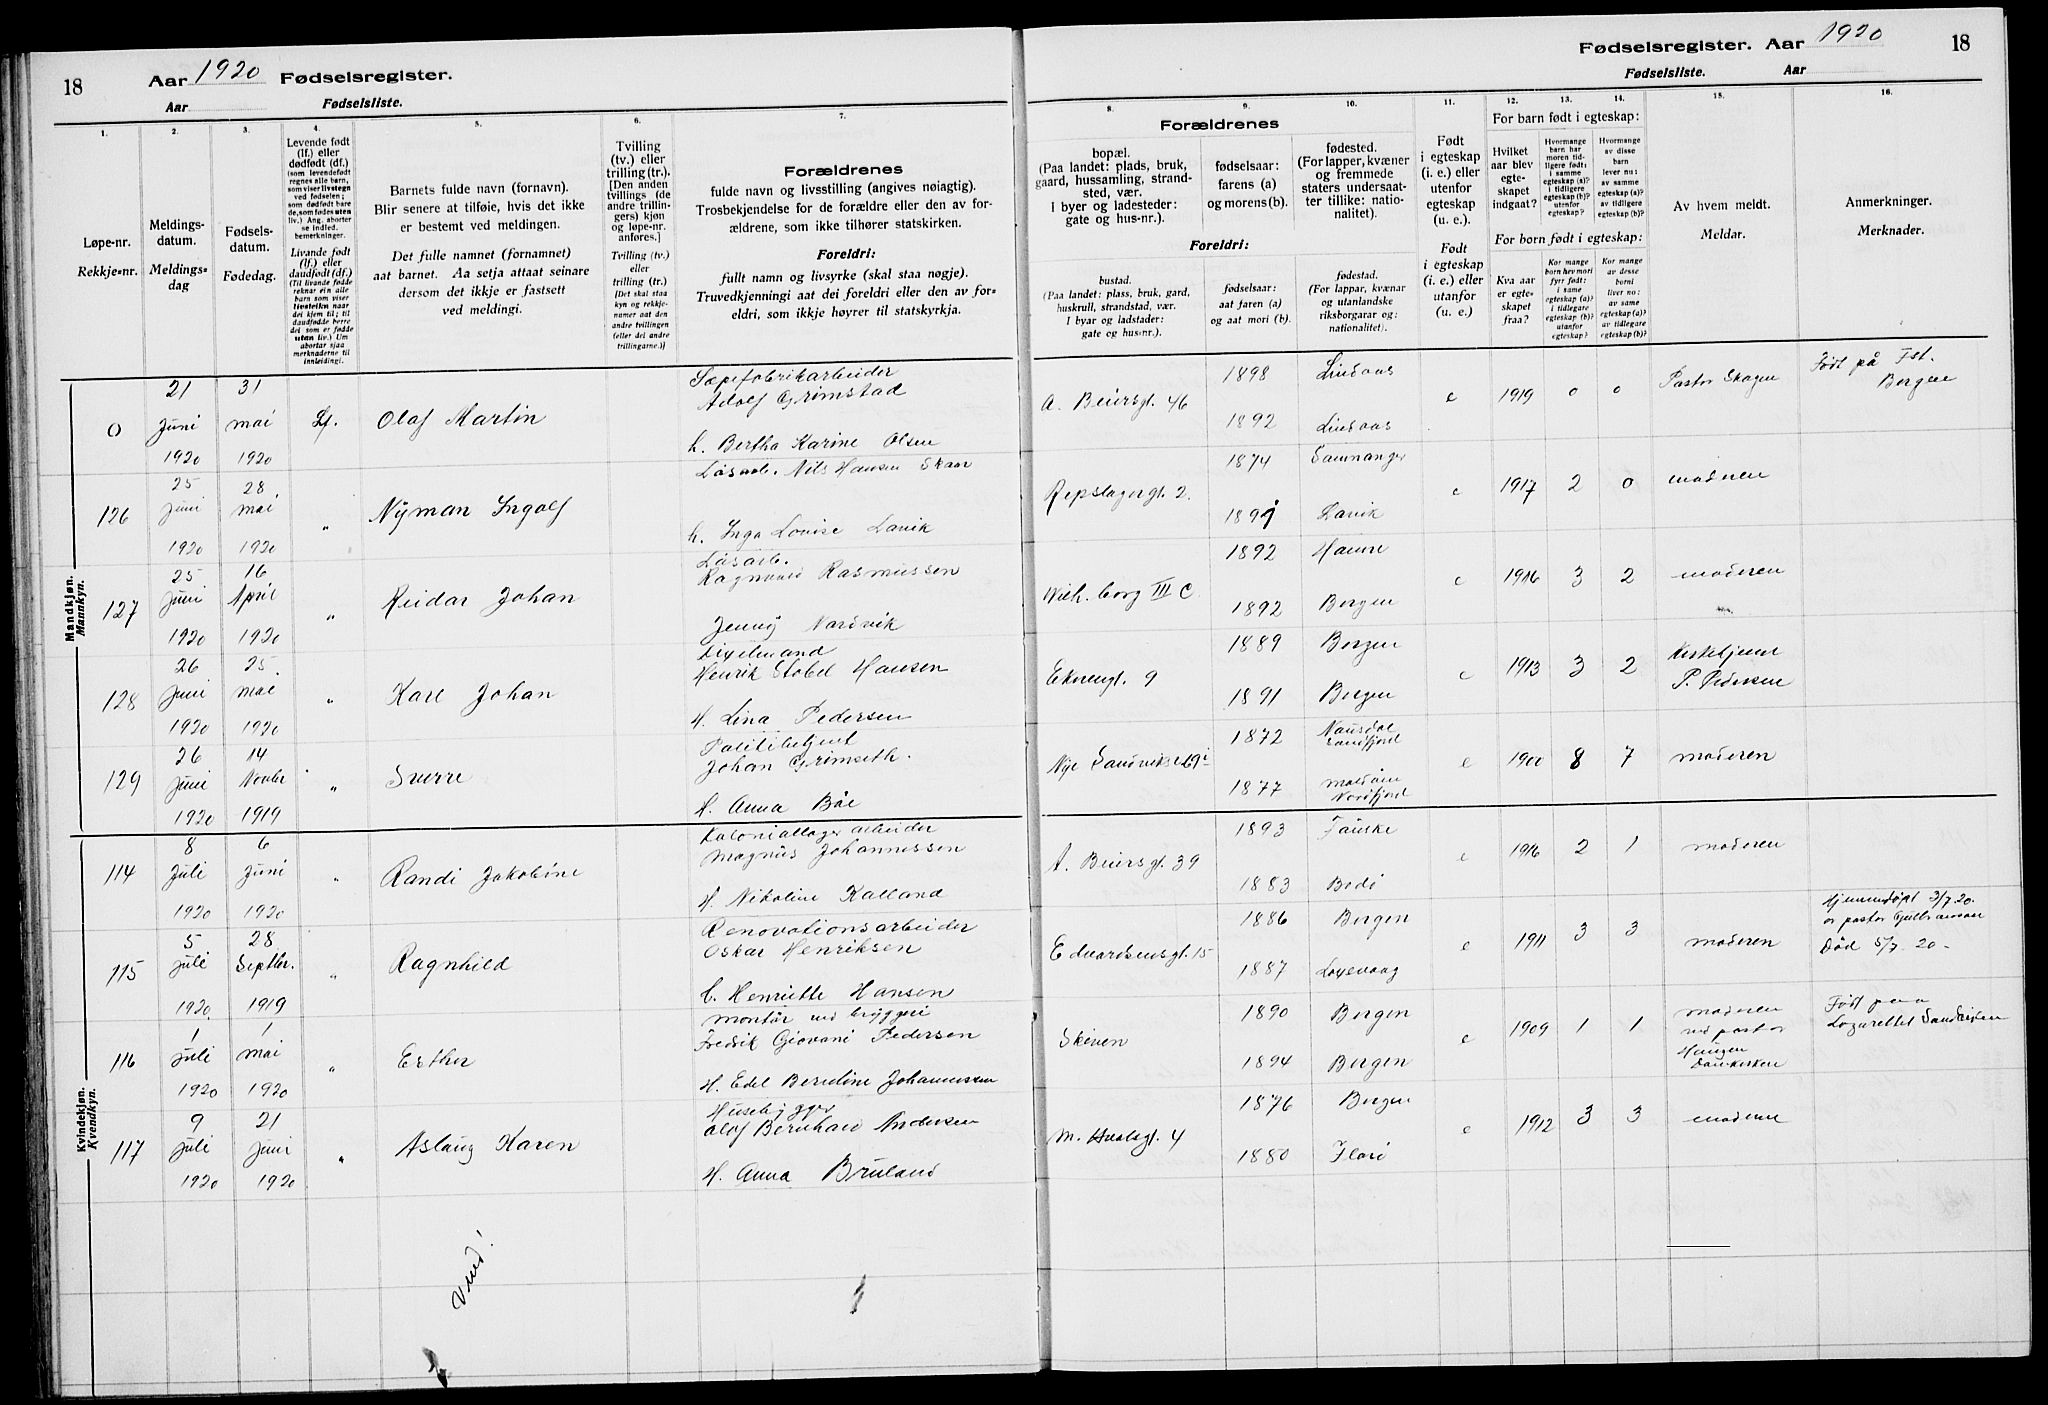 18
Aar 1920 Fødselsregister.
Aar
Fødselsliste.
Fødselsregister. Aar 1920
18
Fødselsliste. Aar
1. 2. 3. 4. 5. 6. 7.
Løpe-nr.
Rekkje-nr.
Meldings-
datum.
Meldings-
dag
Fødsels-
datum.
Fødedag.
Levende født
(lf.) eller
dødfødt (df.)
(som levendefødt
regnes alle barn,
som viser livstegn
ved fødselen;
som dødfødt bare
de, som fødes uten
liv.) Ang. aborter
se indled.
bemerkninger.
Livande født
(lf.) eller
daudfødt (df.)
(Til livande fødde
reknar ein alle
barn som viser
livsteikn naar
dei kjem til; til
daudfødde berre
dei som er fødde
utan liv.) Um
abortar sjaa
merknaderne til
innleidingi.
Barnets fulde navn (fornavn).
Blir senere at tilføie, hvis det ikke
er bestemt ved meldingen.
Det fulle namnet (fornamnet)
aat barnet. Aa setja attaat seinare
dersom det ikkje er fastsett
ved meldingi.
Tvilling
(tv.) eller
trilling (tr.).
[Den anden
tvillings (de
andre trillin-
gers) kjøn
og løpe-nr.
anføres.]
Tvilling (tv.)
eller
trilling (tr.)
[Det skal staa
kyn og rekkje-
numer aat den
andre tvillingen
(eller dei andre
trillingarne.)]
Forældrenes
fulde navn og livsstilling (angives nøiagtig).
Trosbekjendelse for de forældre eller den av for-
ældrene, som ikke tilhører statskirken.
Foreldri:
fullt namn og livsyrke (skal staa nøgje).
Truvedkjenningi aat dei foreldri eller den av for-
eldri, som ikkje høyrer til statskyrkja.
8. 9. 10. 11. 12. 13. 14. 15. 16.
Forældrenes
bopæl.
(Paa landet: plads, bruk,
gaard, hussamling, strand-
sted, vær.
I byer og ladesteder:
gate og hus-nr.).
fødselsaar:
farens (a)
og morens (b).
fødested.
(For lapper, kvæner
og fremmede
staters undersaat-
ter tillike: natio-
nalitet).
Foreldri:
bustad.
(Paa landet: plass, bruk, gard,
huskrull, strandstad, vær.
I byar og ladstader:
gate og hus-nr.).
fødselsaar:
aat faren (a)
og aat mori (b).
fødestad.
(For lappar, kvænar
og utanlandske
riksborgarar og:
nationalitet).
Født
i egteskap
(i. e.) eller
utenfor
egteskap
(u. e.).
Født
i egteskap
(i. e.) eller
utanfor
egteskap
(u. e.)
For barn født i egteskap:
Hvilket
aar blev
egte-
skapet
indgaat?
Hvormange
barn har
moren tid-
ligere født:
i samme
egteskap (a)?
i tidligere
egteskap (b)?
utenfor
egteskap?
Hvormange
av disse
barn
lever nu:
av samme
egteskap (a)?
av tidligere
egteskap (b)?
For born født i egteskap:
Kva aar
er egte-
skapet
fraa?
Kor mange
born hev mori
fyrr født:
i same
egteskap (a)?
i tidlegare
egteskap (b)?
utanfor
egteskap?
Kor mange
av desse
borni
liver no:
av same
egteskap (a)?
av tidlegare
egteskap (b)?
Av hvem meldt.
Meldar.
Anmerkninger.
Merknader.
Mandkjøn.
Mannkyn.
0 21 Juni 1920 31 mai 1920 Lf. Olaf Martin
Sæpefabrikarbeider
Adolf Grimstad
h. Bertha Karine Olsen
A. Beiersgt. 46 1898 Lindaas 1892 Lindaas e 1919 0 0 Pastor Skagen Født på Fst. Bergen
126 25 Juni 1920 28 mai 1920 " Nyman Ingolf
Løsarb. Nils Hansen Skaar
h. Inga Louise Lavik
Repslagergt. 2. 1874 Samnanger Lavik e 1917 2 0 moderen
127 25 Juni 1920 16 April 1920 " Reidar Johan
Løsarb.
Ragnvald Rasmussen
Jenny Nordvik
Wilh. borg III C 1892 1892 Bergen e 1916 3 2 moderen
128 26 Juni 1920 25 mai 1920 " Karl Johan
Henrik Stobel Hansen
H. Lina Pedersen
Ekrengt. 9 1889 Bergen 1891 Bergen e 1913 3 2 P. Pedersen
129 26 Juni 1920 14 Novbr 1919 " Sverre
Politibetjent
Johan Grimseth.
H. Anna Bøe
Nye Sandviksv 1872 Naustdal Søndfjord 1877 Nordfjord e 1900 8 7 moderen
Kvindekjøn.
Kvendkyn.
114 8 Juli 1920 6 Juni 1920 " Randi Jakobine
Koloniallager arbeider
Magnus Johannessen
H. Nikoline Kalland
A. Beiersgt. 39 1893 Fauske 1883 Bodø e 1916 2 1 moderen
115 5 Juli 1920 28 Septbr. 1919 " Ragnhild
Renovationsarbeider
Oskar Henriksen
h. Henriette Hansen
Edvardsensgt. 15 1886 Bergen 1887 Loxevaag e 1911 3 3 moderen
Hjemmedøpt 3/7.20.
av pastor Gulbransen
Død 5/7-20-
116 1 Juli 1920 1 mai 1920 " Esther
montør ved bryggeri
Fredrik Giovani Pedersen
H. Edel Berntine Johannessen
Skiven 1890 Bergen 1894 Bergen e 1909 1 1
moderen
ved pastor
Haugen
Domkirken
Født paa
Lazarettet Sandviken
117 9 Juli 1920 21 Juni 1920 " Aslaug Karen
Husebygger
Olaf Bernhard Andersen
H. Anna Bruland
M. Hvalsgt. 4 1876 Bergen 1880 Florø e 1912 3 3 moderen
Vend!